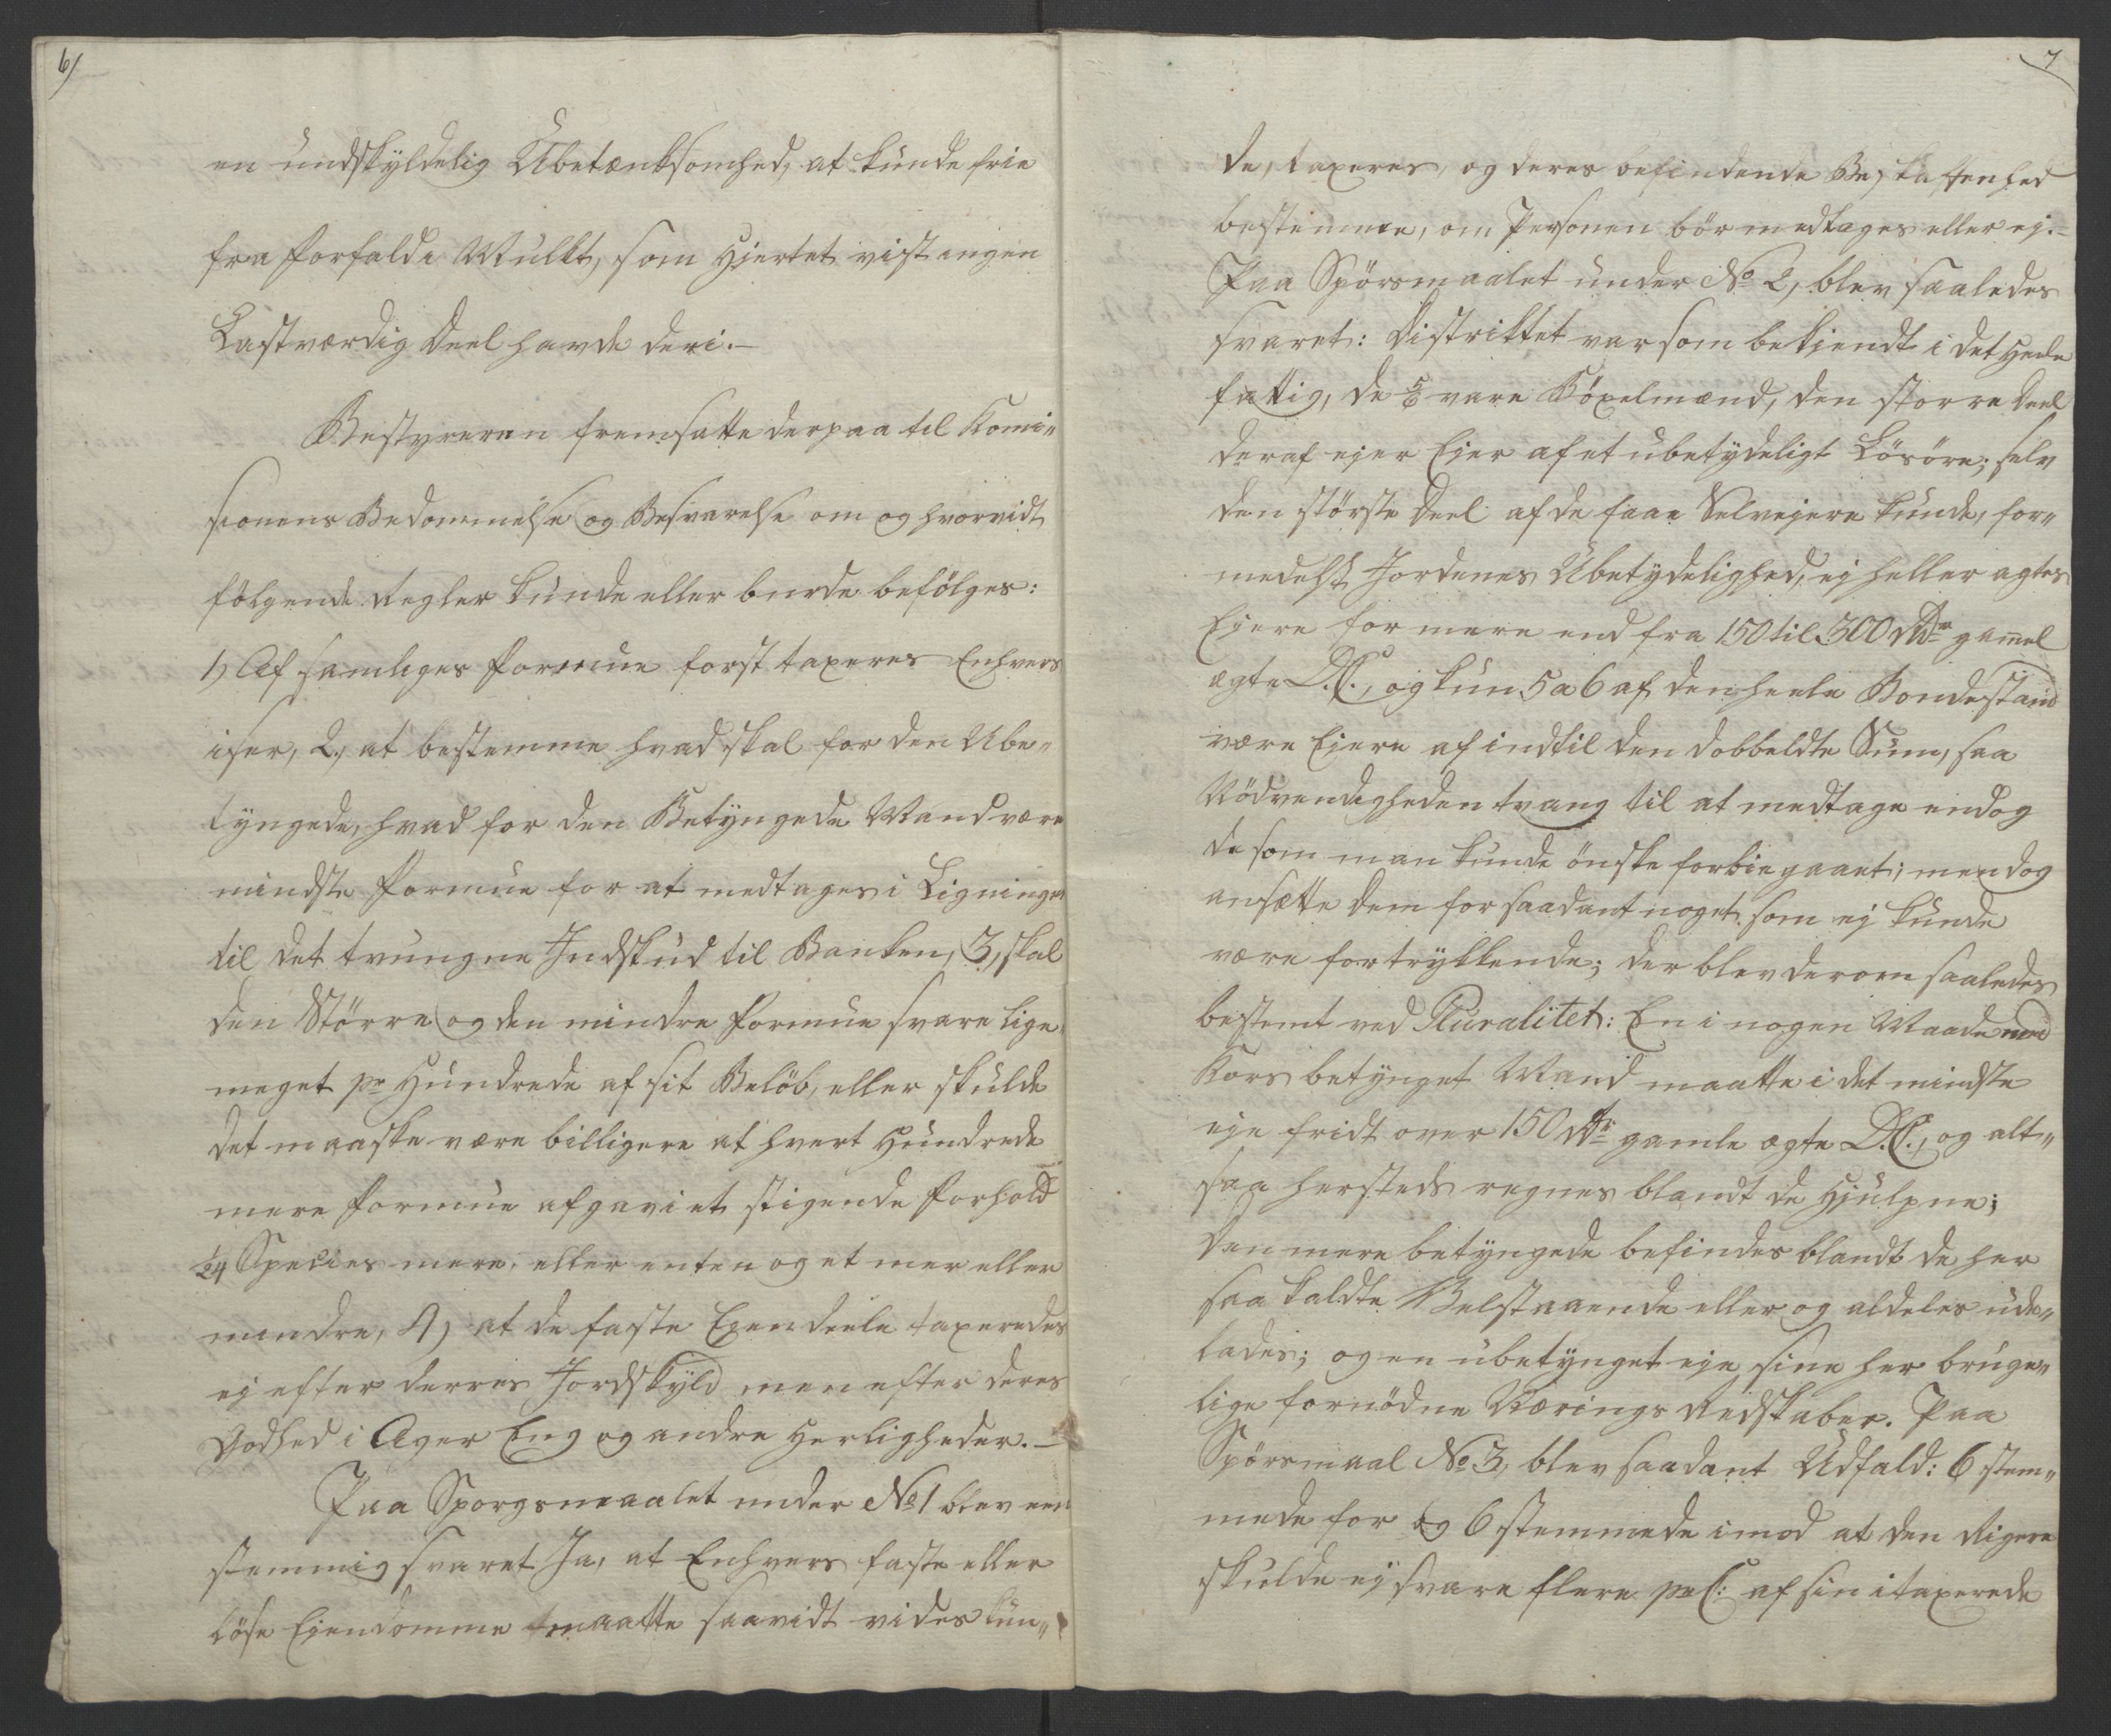 6/
en undskyldelig Ubetænksomhed, at kunde frie
fra forfaldt Mulkt, som Hjertet vist ingen
Lastværdig Deel havde deri.–
Bestyreren fremsatte derpaa til Komi„
sionens Bedømmelse og Besvarelse om og hvorvidt
følgende Regler kunde eller burde befølges:
1) Af samliges Formue først taxeres Enhvers
især, 2, at bestemme hvad skal for den Ube„
tyngede, hvad for den Betyngede Mand være
mindste Formue for at medtages i Ligningen
til det tvungne Indskud til Banken, 3, skal
den Större og den mindre Formue svare lige
meget pr Hundrede af sit Belöb, eller skulde
det maaske være billigere at hvert Hundrede
mere Formue afgav i et stigende Forhold
1/24 Species mere, eller enten og et mer eller
mindre, 4) at de faste Ejendeele taxeredes
ej efter derres Jordskyld men efter deres
Godhed i Ager Eng og andre Herligheder.–
Paa Sporgsmaalet under No 1 blev een
stemmig svaret Ja, at Enhvers faste eller
löse Ejendomme maatte saavidt vides kun„
7
de, taxeres, og deres befindende Beskaffenhed
bestemme, om Personen bör medtages eller ej.–
Paa Spörsmaalet under No 2, blev saaledes
svaret: Distriktet var som bekjendt i det Hele
fattig, de 5/6 vare Böxelmænd, den storre Deel
deraf ejer Ejer af et ubetydeligt Lösöre; selv
den störste Deel af de faae Selvejere kunde, for„
medelst Jordenes Ubetydelighed, ej heller agtes
Ejere for mere end fra 150 til 300 Rdr gamel
ægte D.C., og kun 5 a 6 af den heele Bondestand
være Ejere af indtil den dobbeldte Sum, saa
Nödvendigheden tvang til at medtage endog
de som man kunde önske forbiegaaet; men dog
ansætte dem for saadant noget som ej kunde
være fortrykkende; der blev derom saaledes
bestemt ved Pluralitet: En i nogen Maade med
Kors betynget Mand maatte i det mindste
eje fridt over 150 Rdr gamle ægte D.C., og alt„
saa hersteds regnes blandt de Hjulpne;
den mere betyngede befindes blandt de her
saa kaldte Velstaaende eller og aldeles ude„
lades; og en ubetynget eje sine her bruge„
lige fornödne Nærings Redskaber. Paa
Spörsmaal No 3, blev saadant Udfald: 6 stem„
mede for og 6 stemmede imod at den Rigere
skulde ej svare flere prC: af sin itaxerede